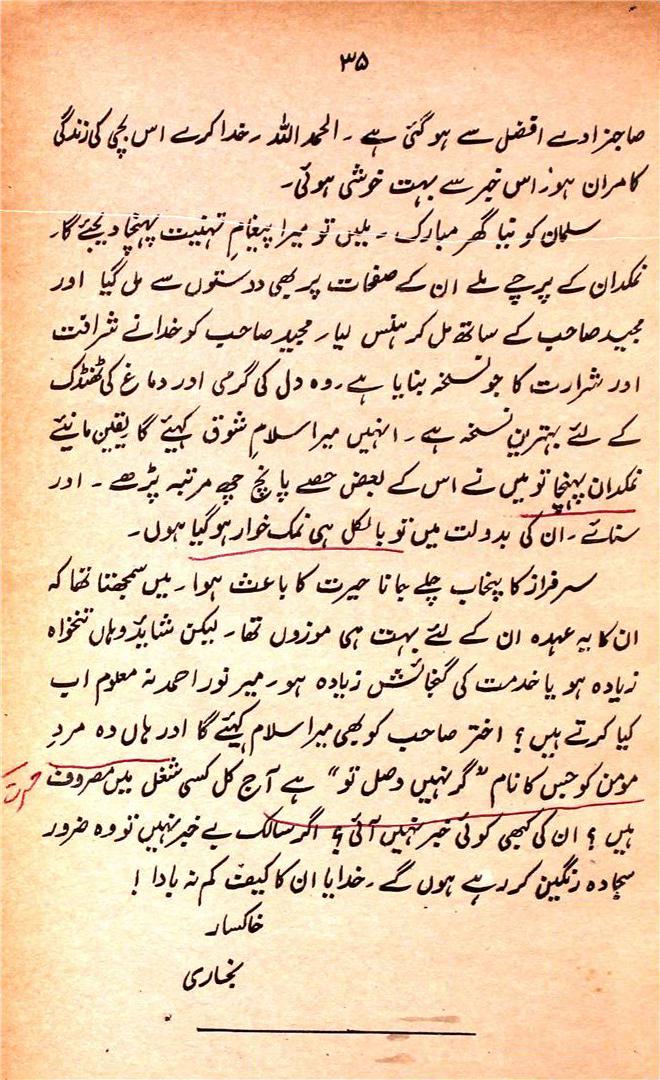 ۳۵
صاجزادے افضل سے ہو گئی ہے ۔ الحمد اللہ ۔ خدا کرے اس بچی کی زندگی
کامران ہو ۔ اس خبر سے بہت خوشی ہوئی۔
سلمان کو نیا گھر مبارک ۔ ملیں تو میرا پیغامِ تہنیت پہنچا دیجئے گا۔
نمکدان کے پرچے ملے ان کے صفحات پر بھی دوستوں سے مل گیا اور
مجید صاحب کے ساتھ مل کر ہنس لیا۔ مجید صاحب کو خدا نے شرافت
اور شرارت کا جو نسخہ بنایا ہے۔ وہ دل کی گرمی اور دماغ کی ٹھنڈک
کے لئے بہترین نسخہ ہے ۔ انہیں میرا سلامِ شوق کہیئے گا یقین مانیئے
نمکدان پہنچا تو میں نے اس کے بعض حصے پانچ چھ مرتبہ پڑھے ۔ اور
سنائے ۔ ان کی بدولت میں تو بالکل ہی نمک خوار ہو گیا ہوں۔
سرفراز کا پنجاب چلے جانا حیرت کا باعث ہوا ۔ میں سمجھتا تھا کہ
ان کا یہ عہدہ ان کے لئے بہت ہی موزوں تھا ۔ لیکن شاید وہاں تنخواہ
زیادہ ہو یا خدمت کی گنجائش زیادہ ہو ۔ میر نور احمد نہ معلوم اب
کیا کرتے ہیں ؟ اختر صاحب کو بھی میرا سلام کہیئے گا اور ہاں وہ مردِ
مومن کو جس کا نام "گر نہیں وصل تو" ہے آج کل کسی شغل میں مصروف
ہیں ؟ ان کی کبھی کوئی خبر نہیں آئی ؟ اگر سالک بے خبر نہیں تو وہ ضرور
سجادہ رنگین کر رہے ہوں گے ۔ خدایا ان کا کیف کم نہ بادا !
خاکسار
بخاری